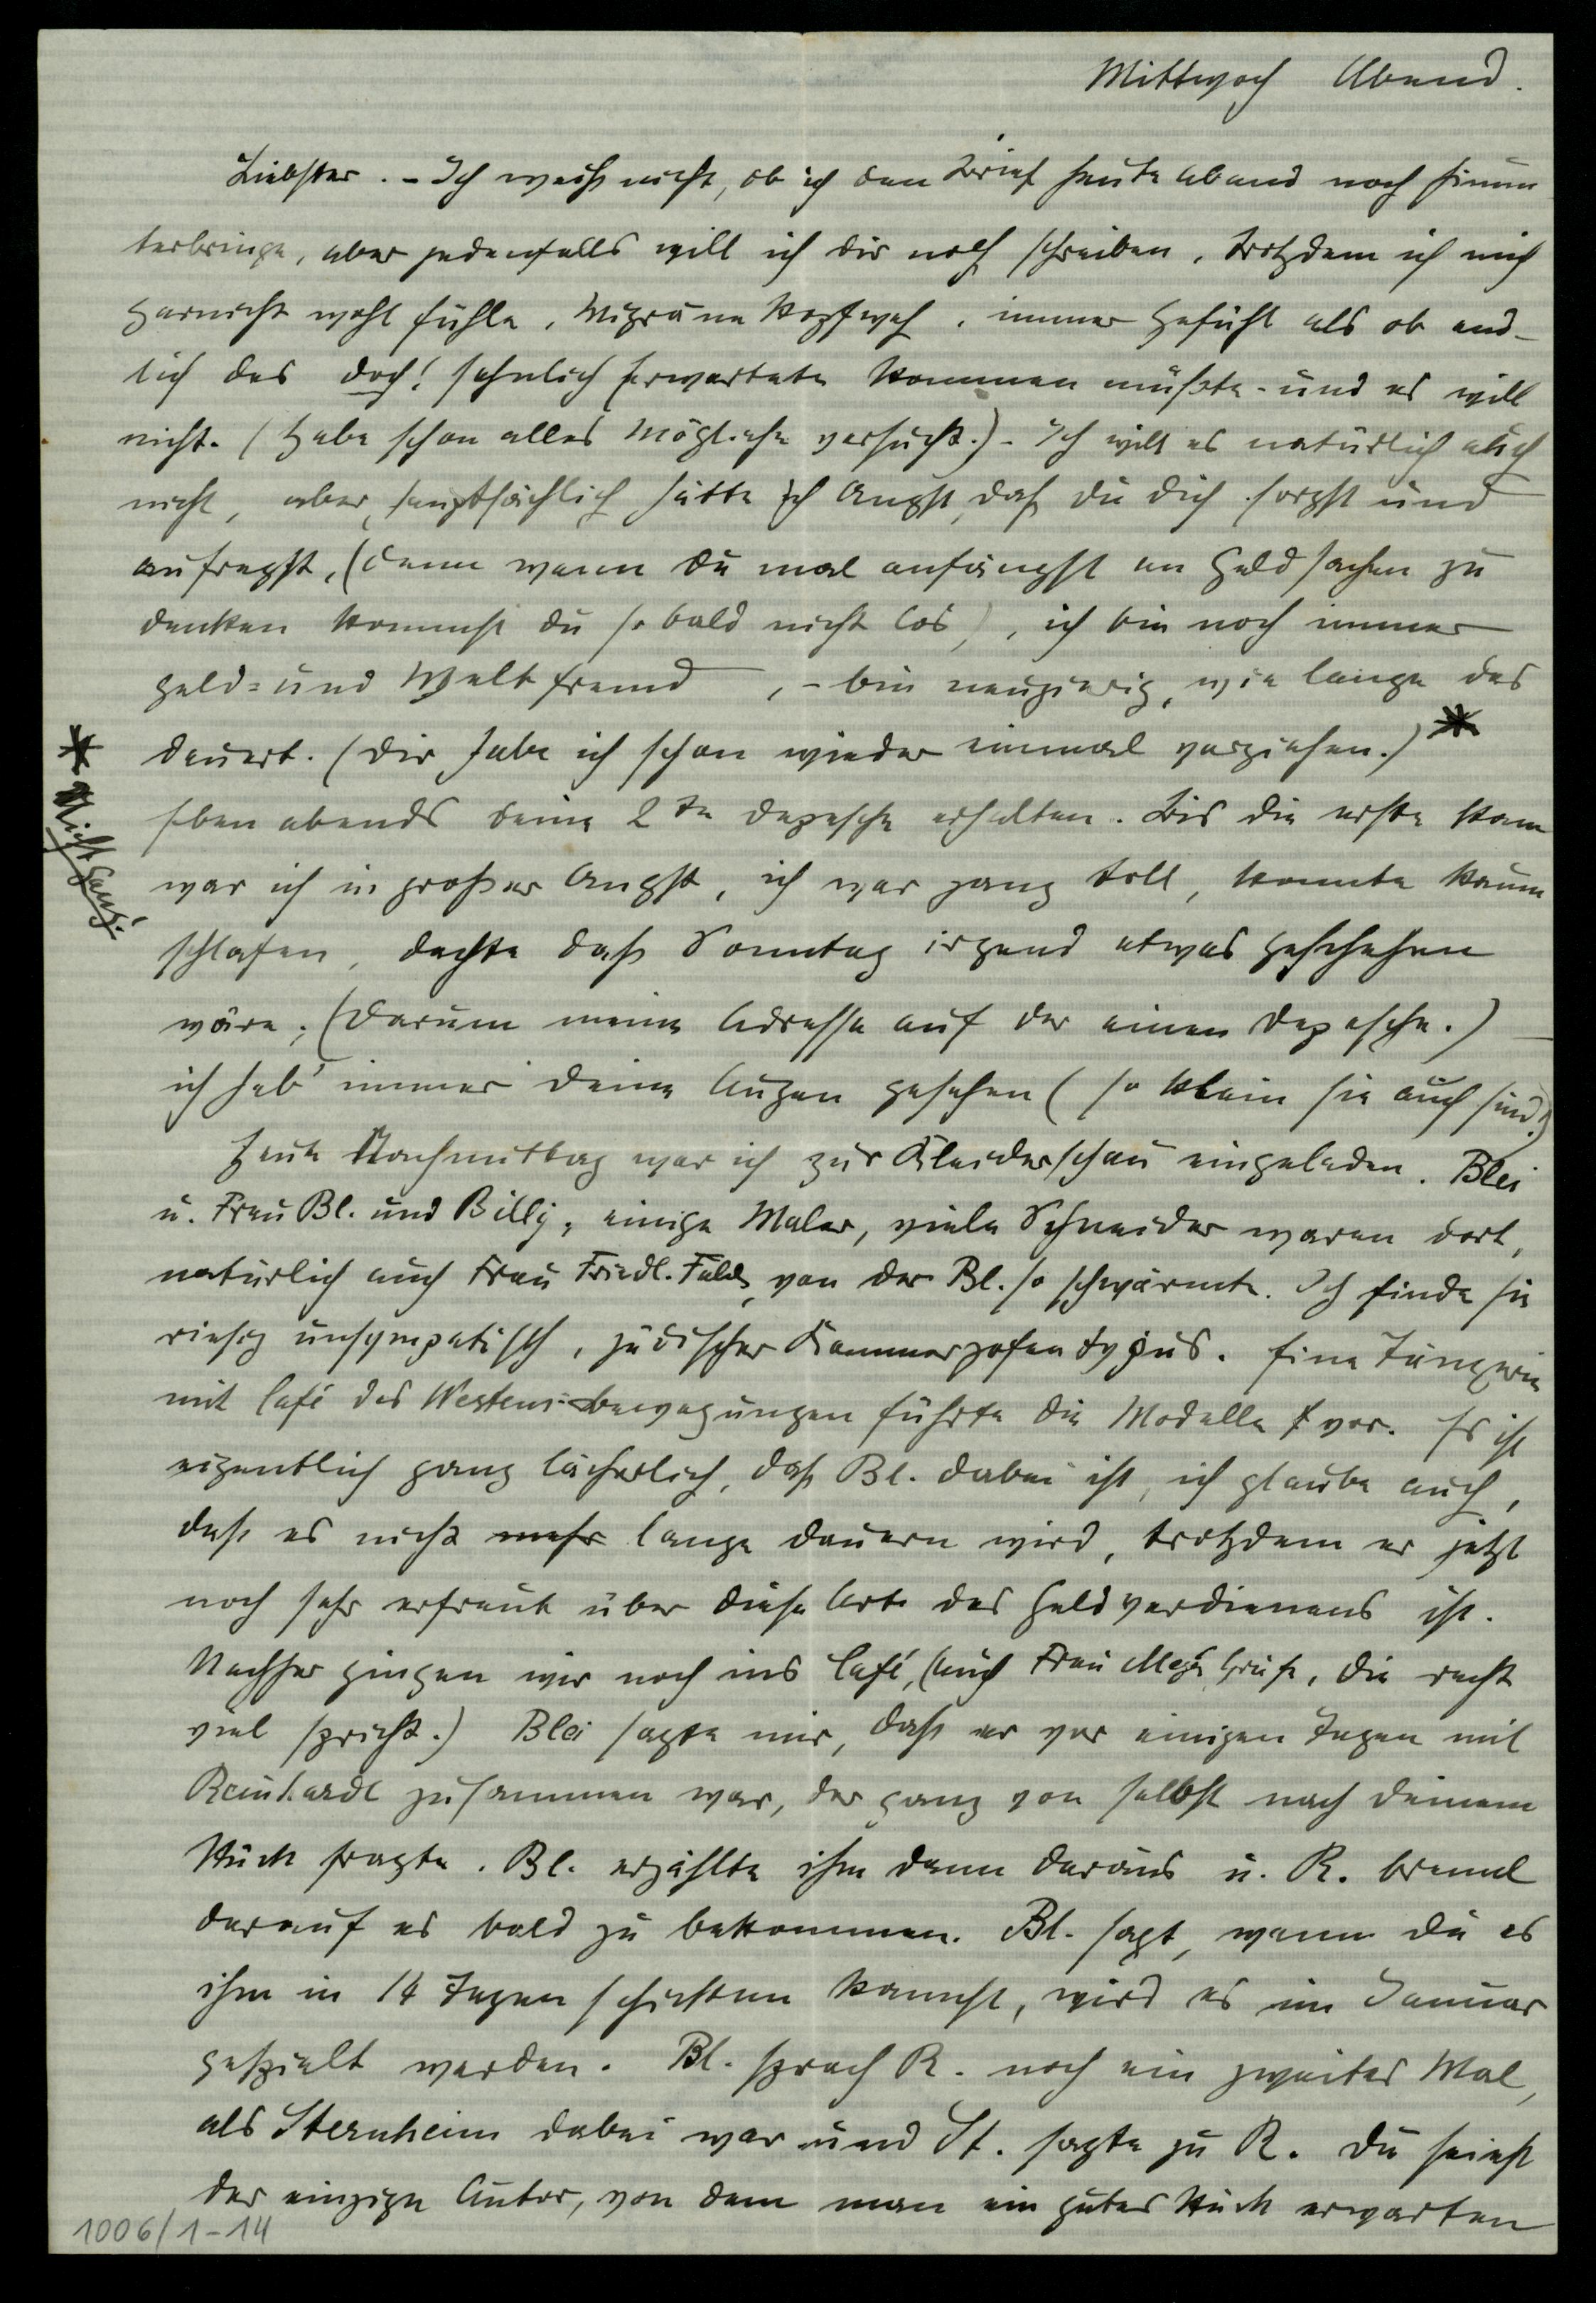 Mittwoch Abend.
Liebster. – Ich weiß nicht, ob ich den Brief heute abend noch hinun
terbringe, aber jedenfalls will ich dir noch schreiben, trotzdem ich mich
garnicht wohl fühle, Migräne Kopfweh, immer Gefühl als ob end-
lich das doch! sehnlich Erwartete kommen müßte – und es will
nicht. (Habe schon alles Mögliche versucht.) – Ich will es natürlich auch
nicht, aber, hauptsächlich hätte ich Angst, daß du dich sorgst und
aufregst, (denn wenn du mal anfängst an Geldsachen zu
denken kommst du so bald nicht los), ich bin noch immer
geld= und Weltfremd, – bin neugierig, wie lange das
dauert. (Dir habe ich schon wieder einmal verziehen.) *
* Nicht ganz!
Eben abends deine 2te Depesche erhalten. Bis die erste kam
war ich in großer Angst, ich war ganz toll, konnte kaum
schlafen, dachte daß Sonntag irgend etwas geschehen
wäre; (Darum meine Adresse auf der einen Depesche.) –
ich hab' immer deine Augen gesehen (so klein sie auch sind!)
Heute Nachmittag war ich zur Kleiderschau eingeladen. Blei
u. Frau Bl. und Billy, einige Maler, viele Schneider waren dort,
natürlich auch Frau Friedl. Fuld, von der Bl. so schwärmte. Ich finde sie
riesig unsympatisch, jüdischer Kammerzofentypus. Eine Tänzerin
mit Café des Westens-bewegungen führte die Modelle vor. Es ist
eigentlich ganz lächerlich, daß Bl. dabei ist, ich glaube auch,
daß es nicht mehr lange dauern wird, trotzdem er jetzt
noch sehr erfreut über diese Art des Geldverdienens ist.
Nachher gingen wir noch ins Café, (auch Frau die recht
viel spricht.) Blei sagte mir, daß er vor einigen Tagen mit
Reinhardt zusammen war, der ganz von selbst nach deinem
Stück fragte. Bl. erzählte ihm dann daraus u. R. brennt
darauf es bald zu bekommen. Bl. sagt, wenn du es
ihm in 14 Tagen schicken kannst, wird es im Januar
gespielt werden. Bl. sprach R. noch ein zweites Mal,
als Sternheim dabei war und St. sagte zu R. du seiest
der einzige Autor, von dem man ein gutes Stück erwarten
1006/1-14